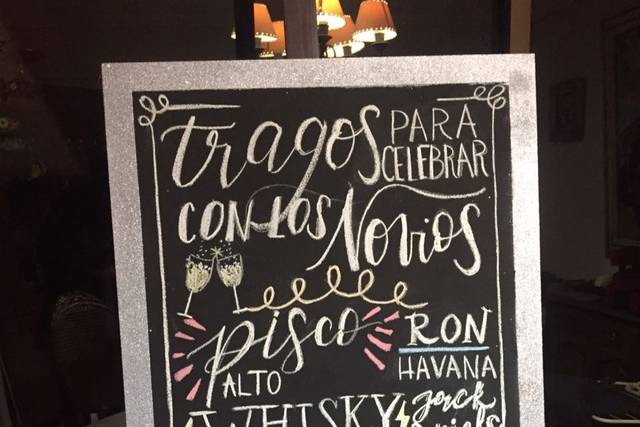 Tragos PARA
CELEBRAR
CON LOS Novios
Pisco
ALTO
RON
HAVANA
WHISKY Jack
Daniels